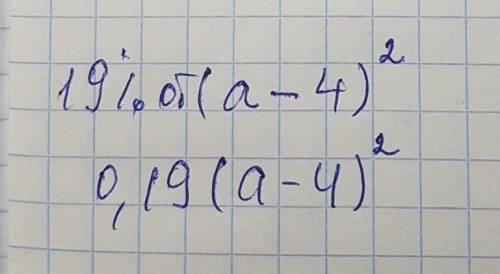 19% от (a - 4)²
0,19 (a - 4)²